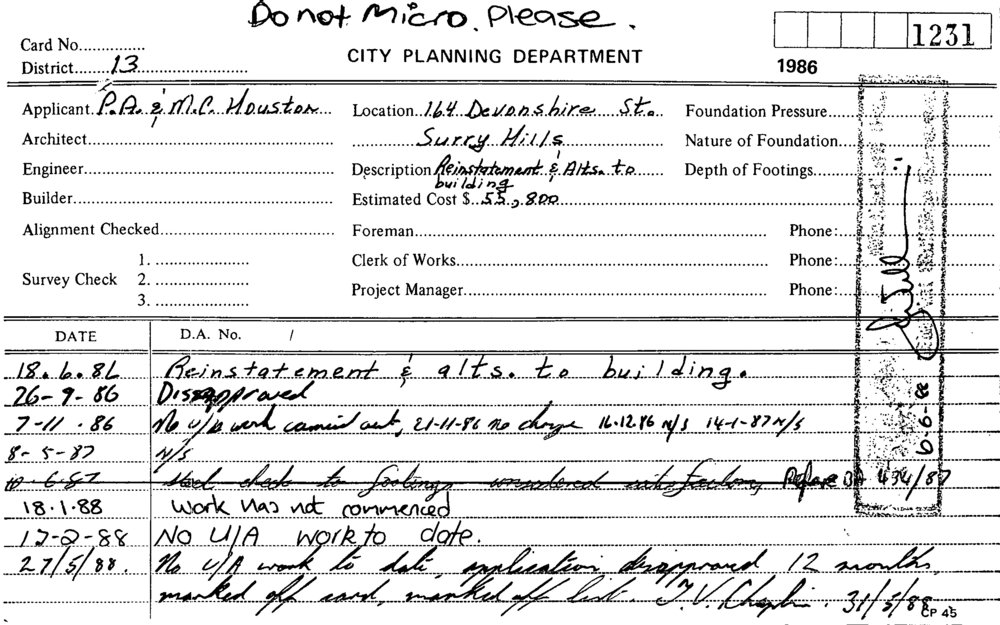 Do not Micro. Please.
Card No...............
1231
CITY PLANNING DEPARTMENT
District......13...........................
1986
Applicant P.A. & M.C. Houston
Location...164 Devonshire St.
Foundation Pressure
Architect
Surry Hills
Nature of Foundation
Engineer
Description Reinstatement & Alts. to
building
Depth of Footings
Builder
Estimated Cost $..55,800
Alignment Checked
Foreman
Phone:
Survey Check
1.
2.
3.
Clerk of Works
Phone:
Project Manager
Phone:
6-6-88
DATE
D.A. No. /
18.6.86 Reinstatement & alts. to building.
26-9-86 Disapproved
7-11.86 No U/A work carried out, 21-11-86 no change 16.12.86 N/S 14-1-87 N/S
8-5-87 N/S
10.6.87 Steel check to footings satisfactory Refers BA 434/87
18.1.88 Work has not commenced
17-2-88 No U/A work to date.
27/5/88. No U/A work to date, application disapproved 12 months,
marked off card, marked off list. T.V. Chaplin. 31/5/88
CP 45